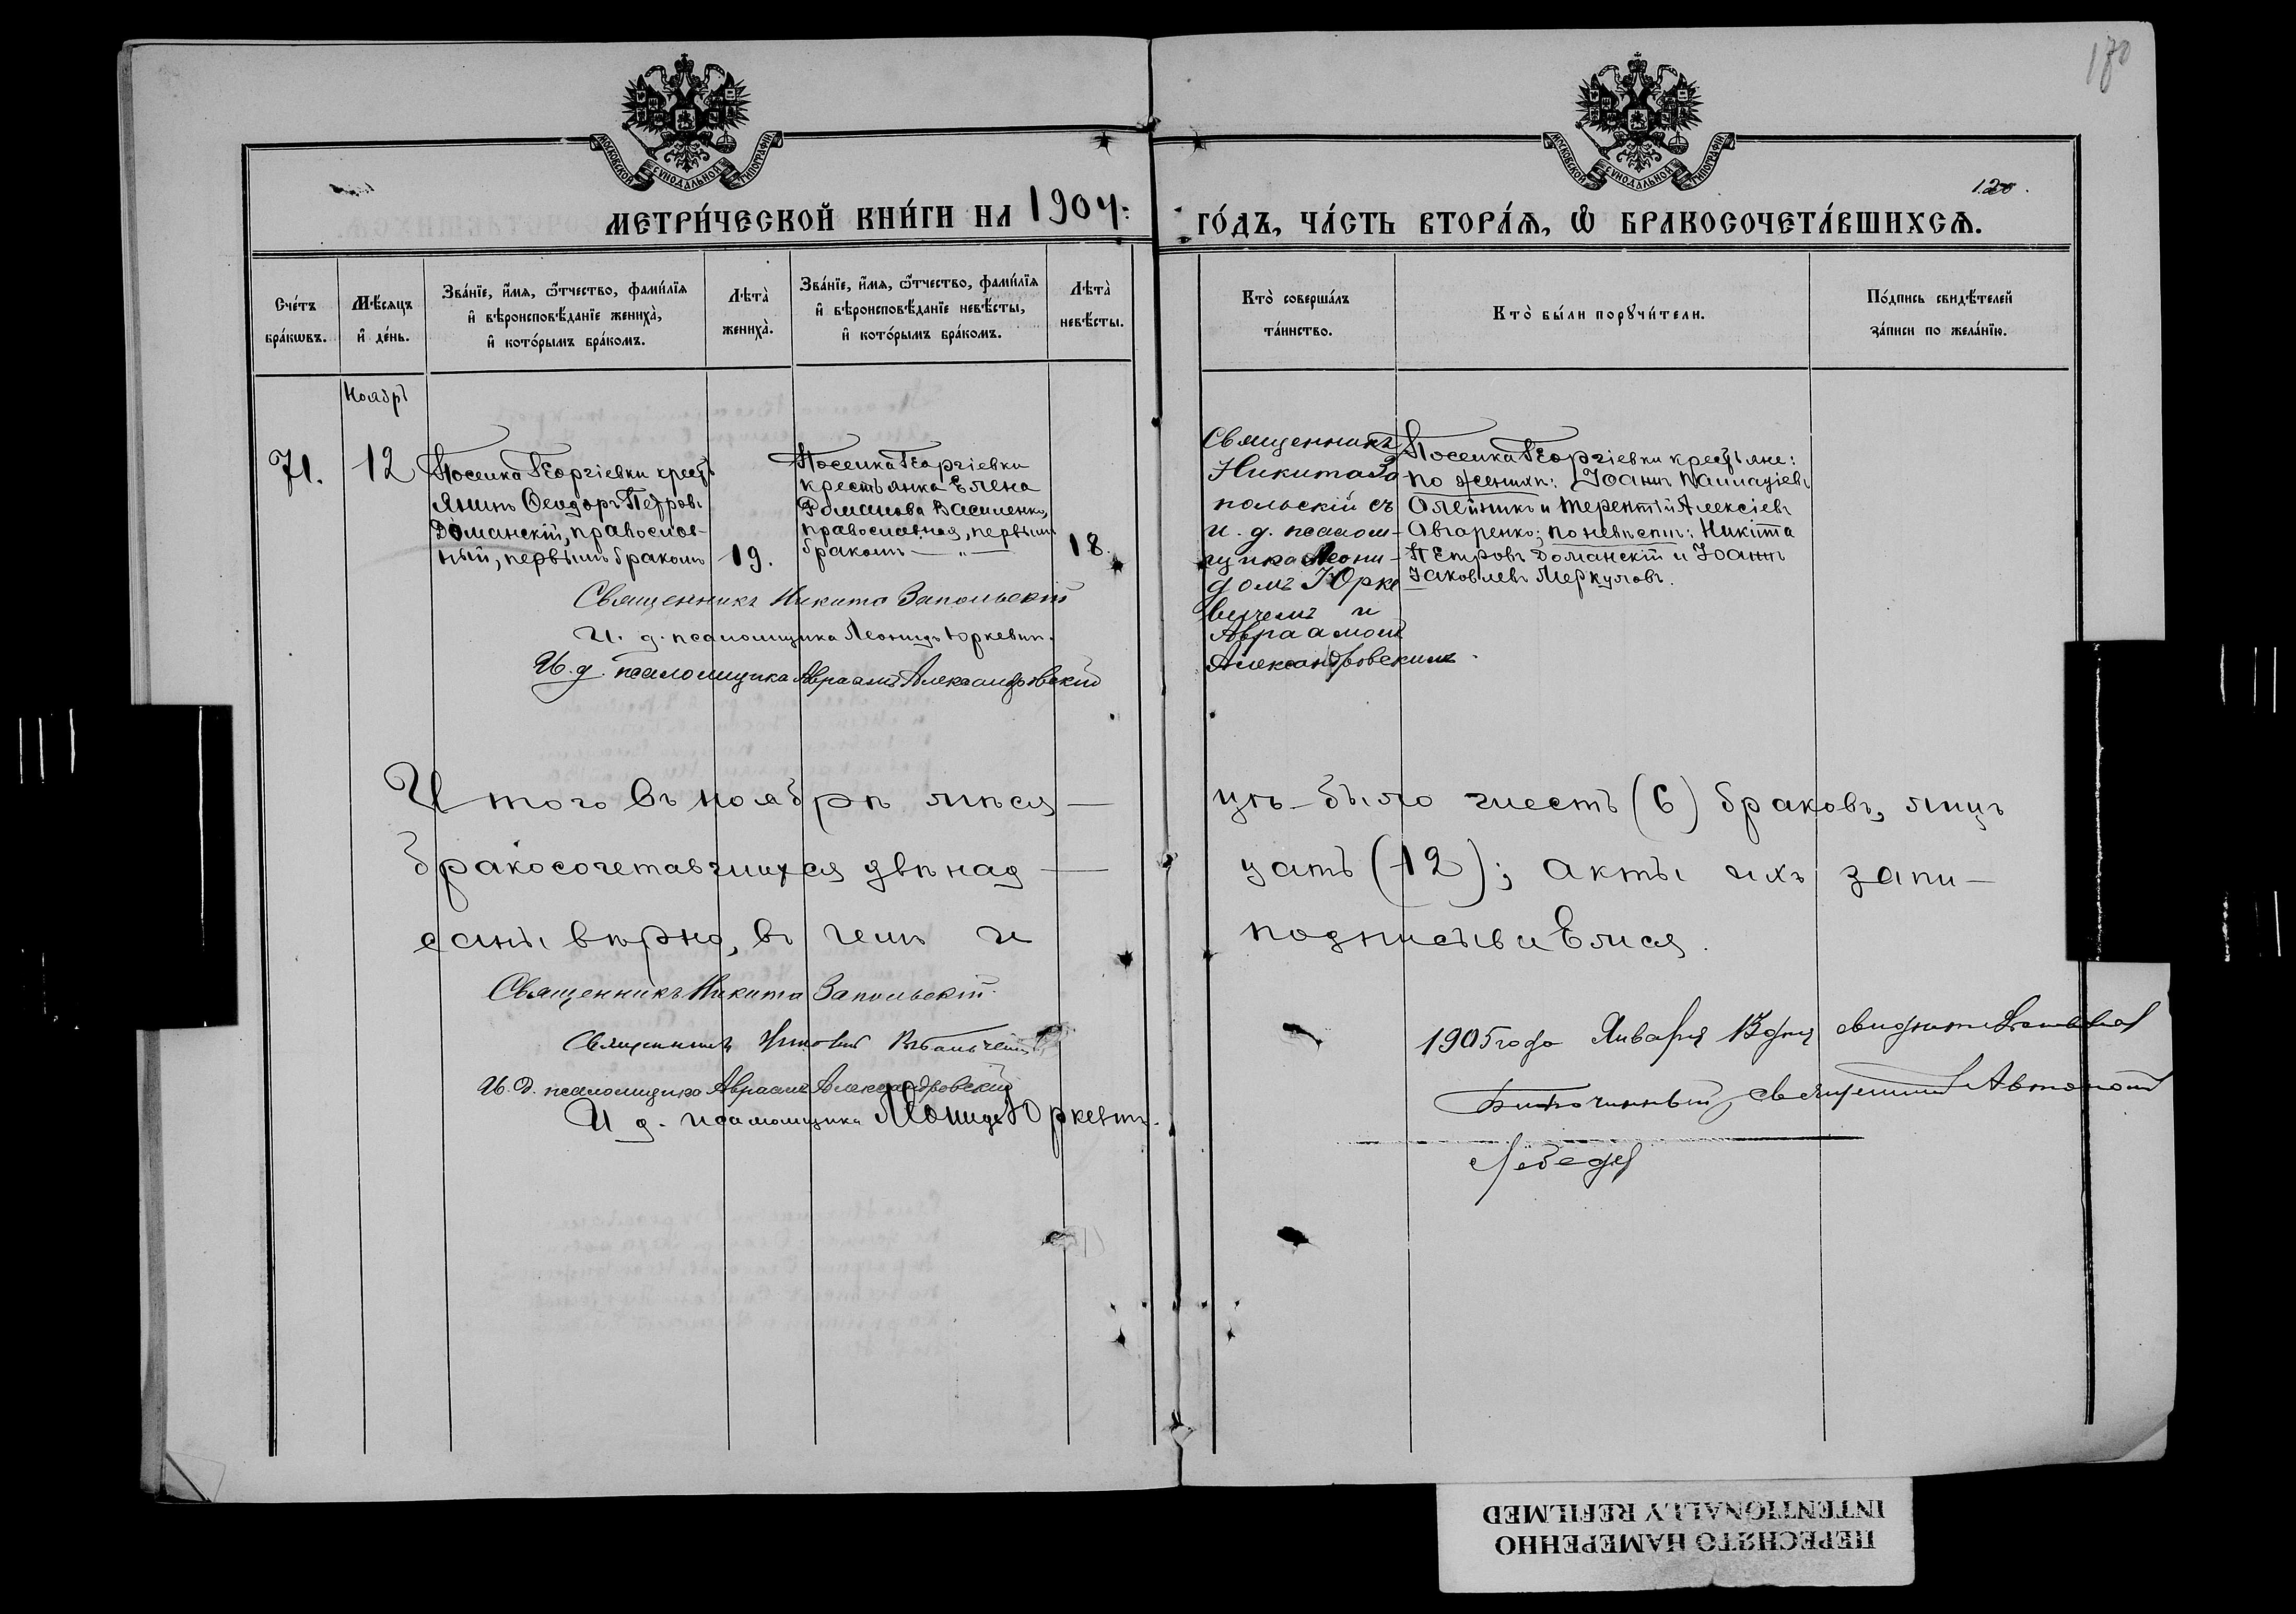 170
МОСКОВСКОЙ СѴНОДАЛЬНОЙ ТИПОГРАФІИ
МОСКОВСКОЙ СѴНОДАЛЬНОЙ ТИПОГРАФІИ
120.
МЕТРИ́ЧЕСКОЙ КНИ́ГИ НА 1904. ГО́ДЪ, ЧА́СТЬ ВТОРА́Ѧ, Ѽ БРАКОСОЧЕТА́ВШИХСѦ.
Сче́тъ бра́кѡвъ.
Мѣ́сяцъ и҆ де́нь.
Зва́нїе, и҆́мѧ, ѻ҆́тчество, фами́лїѧ и҆ вѣроисповѣ́данїе жениха̀, и҆ кото́рымъ бра́комъ.
Лѣта̀ жениха̀.
Зва́нїе, и҆́мѧ, ѻ҆́тчество, фами́лїѧ и҆ вѣроисповѣ́данїе невѣ́сты, и҆ кото́рымъ бра́комъ.
Лѣта̀ невѣ́сты.
Кто̀ соверша́лъ та́инство.
Кто̀ бы́ли порꙋчи́тели.
По́дпись свидѣ́телей за́писи по жела́нїю.
Ноябрь
71.
12
Поселка Георгіевки кресть
янинъ Ѳеодоръ Петровъ
Доманскій, православ-
ный, первымъ бракомъ
19.
Поселка Георгіевки
крестьянка Елена
Романова Василенко,
православная, первымъ
бракомъ — „ —
18.
Священникъ
Никита За
польскій съ
и. д. псалом-
щика Леони-
домъ Юрке
вичемъ и
Авраамомъ
Александровскимъ.
Поселка Георгіевки крестьяне:
по женихѣ: Іоаннъ Палладіевъ
Олейникъ и Терентій Алексіевъ
Овчаренко; по невѣстѣ: Никита
Петровъ Доманскій и Іоаннъ
Іаковлевъ Меркуловъ.
Священникъ Никита Запольскій
И. д. псаломщика Леонидъ Юркевич.
И. д. псаломщика Авраамъ Александровскій
Итого въ ноябрѣ мѣся— цѣ было шесть (6) браковъ, лицъ
бракосочетавшихся двѣнад— цать (12); акты ихъ запи—
саны вѣрно, въ чемъ и подписываемся.
Священникъ Никита Запольскій.
Священникъ
И. д. псаломщика Авраамъ Александровскій
И д. псаломщика Леонидъ Юркевичъ.
1905 года Января 13 дня свидѣтельствовал
Благочинный, священникъ Автоном
Лебедев
ПЕРЕСНЯТО НАМЕРЕННО
INTENTIONALLY REFILMED